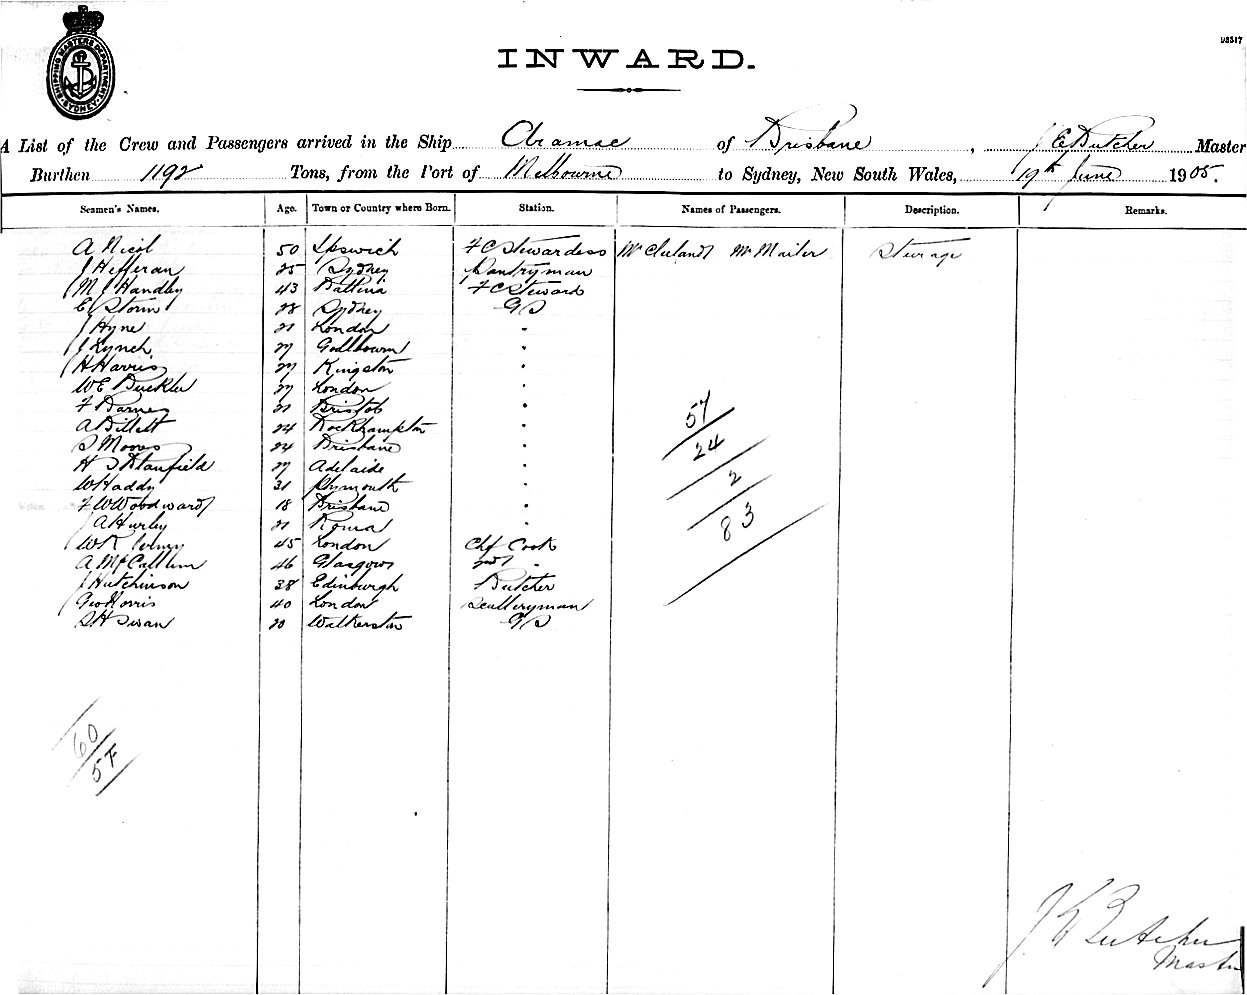 SHIPPING MASTERS DEPARTMENT SYDNEY
INWARD.
A List of the Crew and Passengers arrived in the Ship Aramac of Brisbane, J E Butcher Master
Burthen 1192 Tons, from the Port of Melbourne to Sydney, New South Wales, 19th June 1905.
Seamen's Names. Age. Town or Country where Born. Station. Names of Passengers. Description. Remarks.
A Nicol 50 Ipswich F C Stewardess Mr Cleland Mr Mailer Steerage
J Hefferan 25 Sydney Pantryman
M J Handley 43 Ballina F C Steward
E Storm 28 Sydney G S
J Hyne 21 London "
J Lynch 27 "
H Harris 27 Kingston "
W E Buckler 27 London "
F Barnes 21 Bristol "
A Billett 24 Rockhampton "
S Moores 24 Brisbane "
H S Stanfield 27 Adelaide "
W Haddy 31 Plymouth "
F W Woodward 18 Brisbane "
J A Hurley 21 Roma "
W R 45 London Chf Cook
A McCallum 46 Glasgow 2nd "
J Hutchinson 38 Edinburgh Butcher
Geo Norris 40 London Sculleryman
S H Swan 20 Walkerston G S
57
24
2
83
60
57
J E Butcher
Master